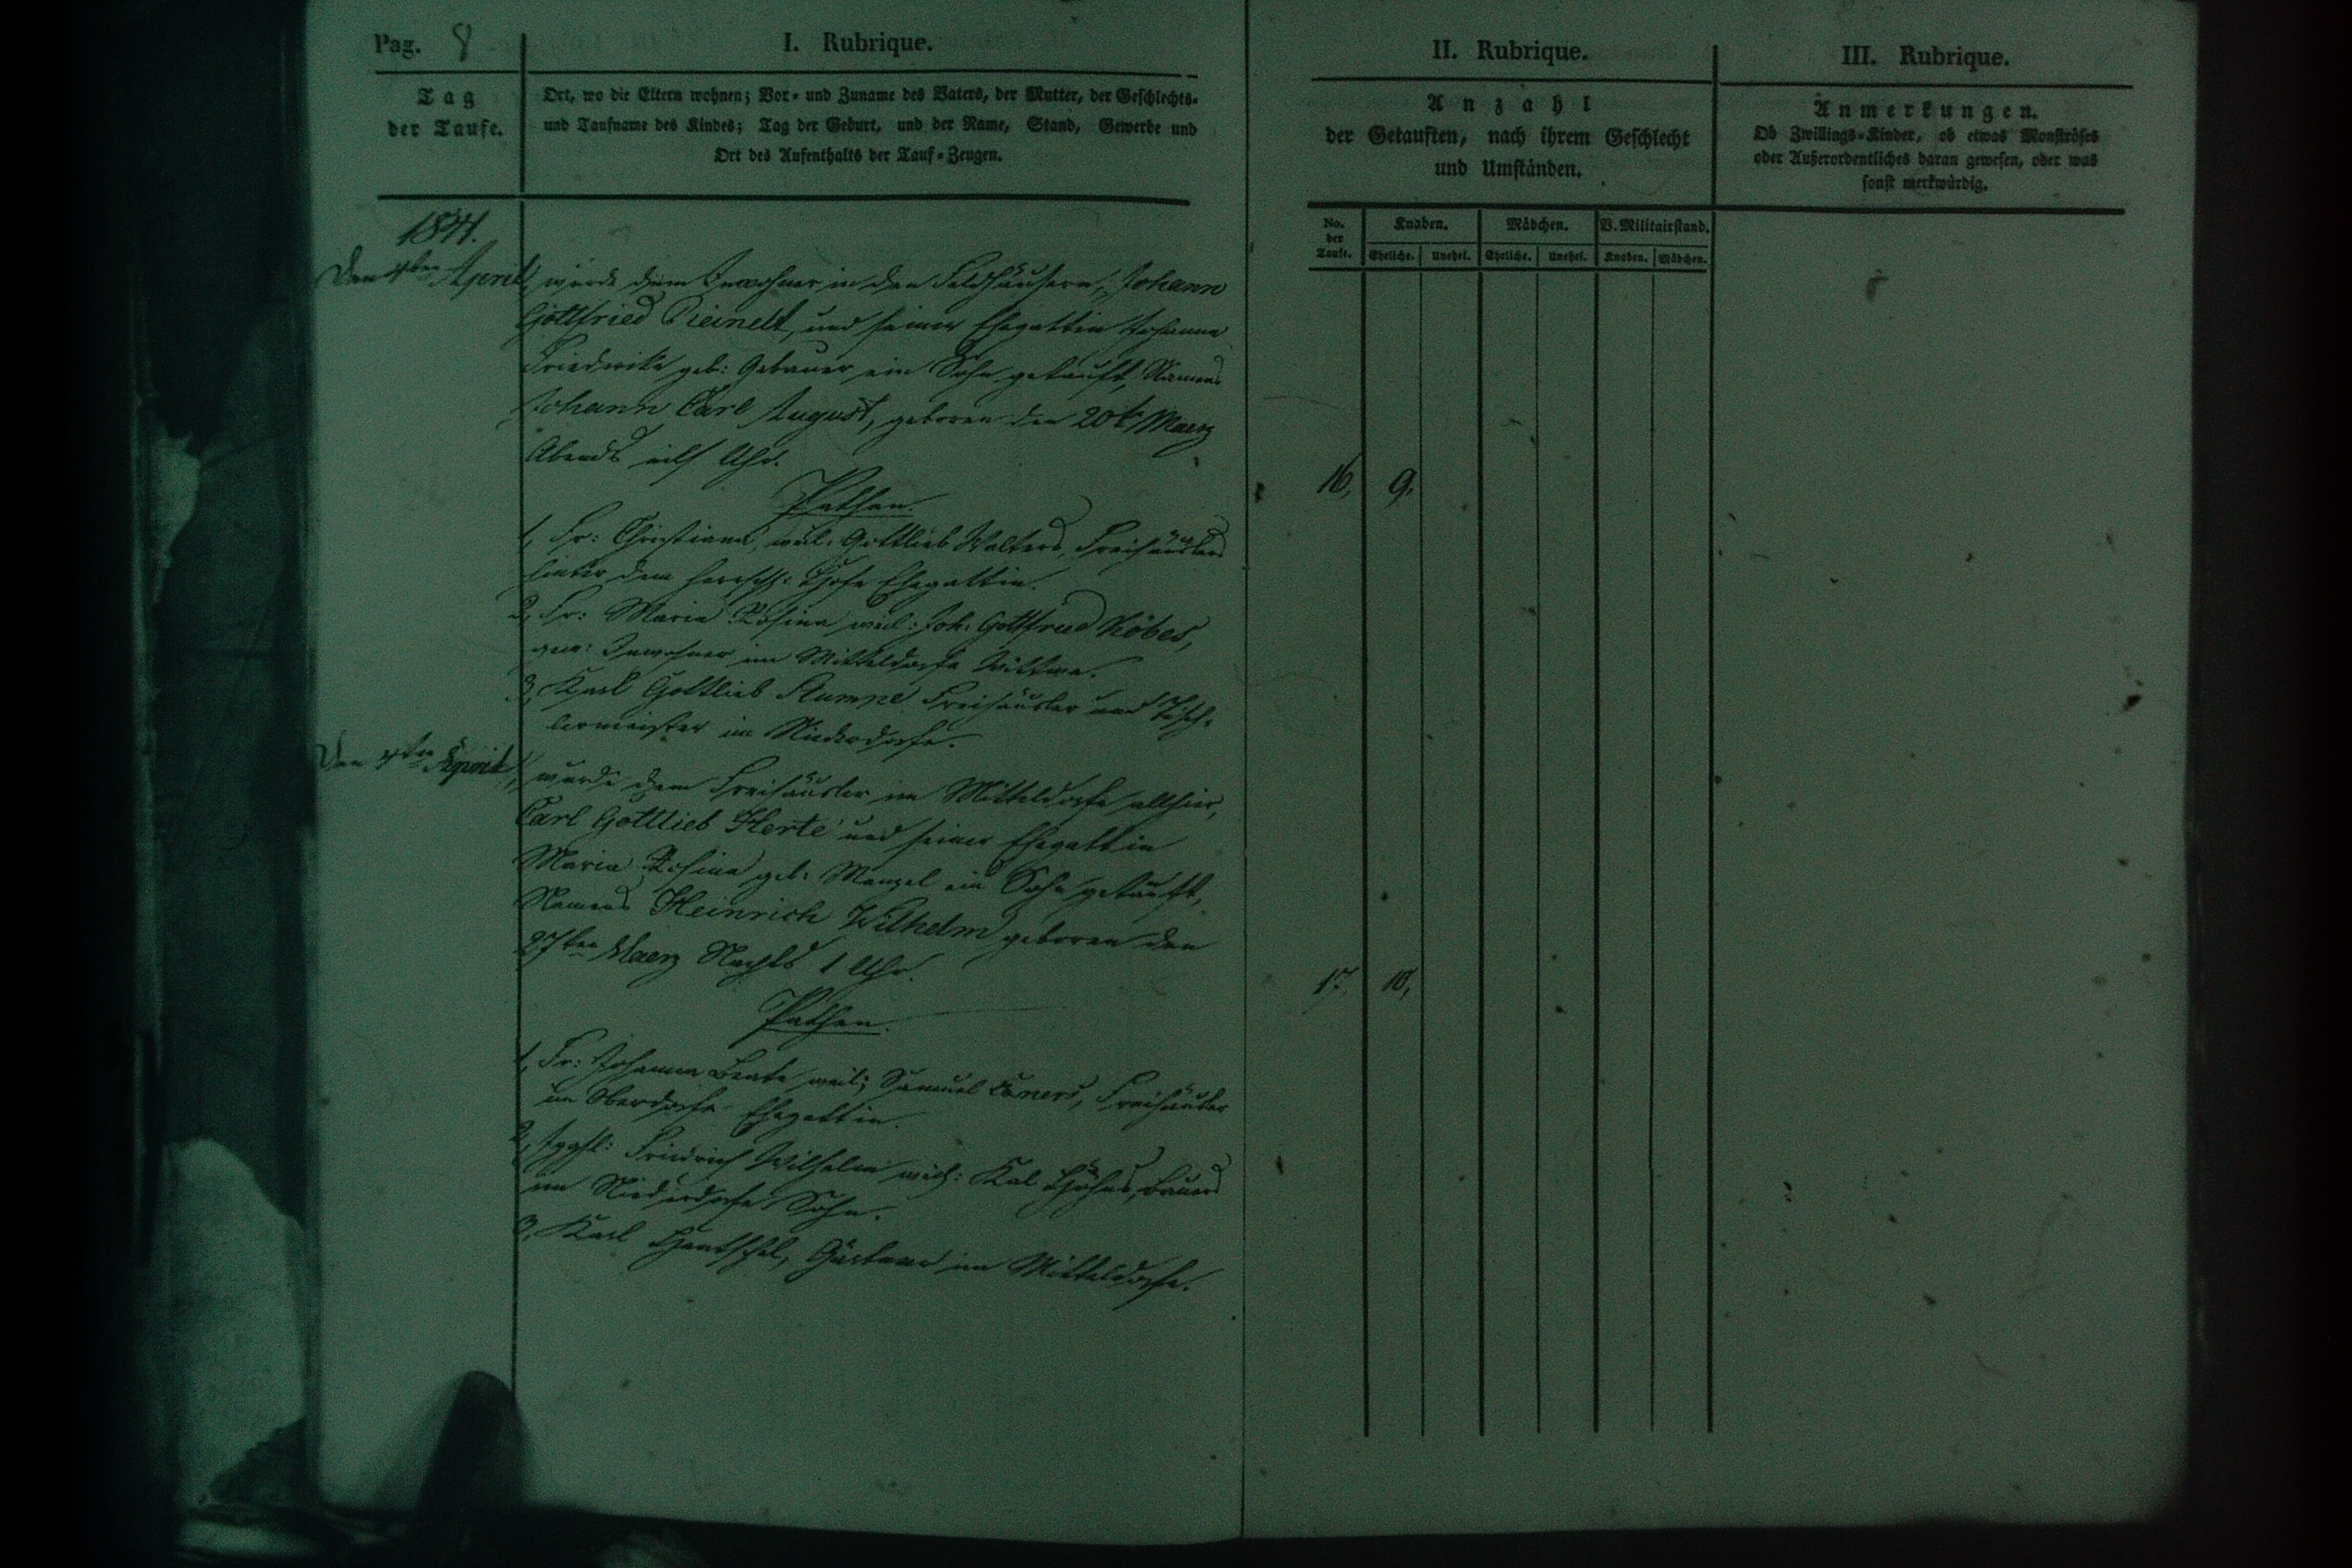 Pag. 8
I. Rubrique.
Tag
der Taufe.
Ort, wo die Eltern wohnen; Vor- und Zuname des Vaters, der Mutter, der Geschlechts-
und Taufname des Kindes; Tag der Geburt, und der Name, Stand, Gewerbe und
Ort des Aufenthalts der Tauf-Zeugen.
1841.
Den 4ten April
wurde dem Inwohner in den Feldhäusern, Johann
Gottfried und seiner Ehegattin Johanne
Friedrike geb: Gebauer ein Sohn getauft, Namens
Johann Carl August, geboren den 20t Maerz
Abends eilf Uhr.
Pathen.
1, Fr: Christiana, Gottlieb Walters, Freihäuslers
hinter dem herrsch: Hofe Ehegattin.
2, Fr: Maria Rosina weil: Joh: Gottfried Köbes,
gew: Inwohner im Mitteldorfe Wittwe.
3, Karl Gottlieb Stumpe Freihäusler und Tisch-
lermeister im Niederdorfe.
Den 4ten April
wurde dem Freihäusler im Mitteldorfe allhier,
Carl Gottlieb Herte und seiner Ehegattin
Maria Rosina geb: Menzel ein Sohn getauft,
Namens Heinrich Wilhelm geboren den
27ten Maerz Nachts 1 Uhr.
Pathen.
1, Fr: Johanna Beate Samuel Freihäusler
im Oberdorfe Ehegattin.
2, Jggsl: Friedrich Wilhelm Bauers
im Niederdorfe Sohn.
3, Karl Hentschel, Gärtner im Mitteldorfe.
II. Rubrique.
Anzahl
der Getauften, nach ihrem Geschlecht
und Umständen.
No. der Taufe.
Knaben. Mädchen. V. Militairstand.
Eheliche. Unehel. Eheliche. Unehel. Knaben. Mädchen.
16, 9,
17, 10,
III. Rubrique.
Anmerkungen.
Ob Zwillings-Kinder, ob etwas Monströses
oder Außerordentliches daran gewesen, oder was
sonst merkwürdig.